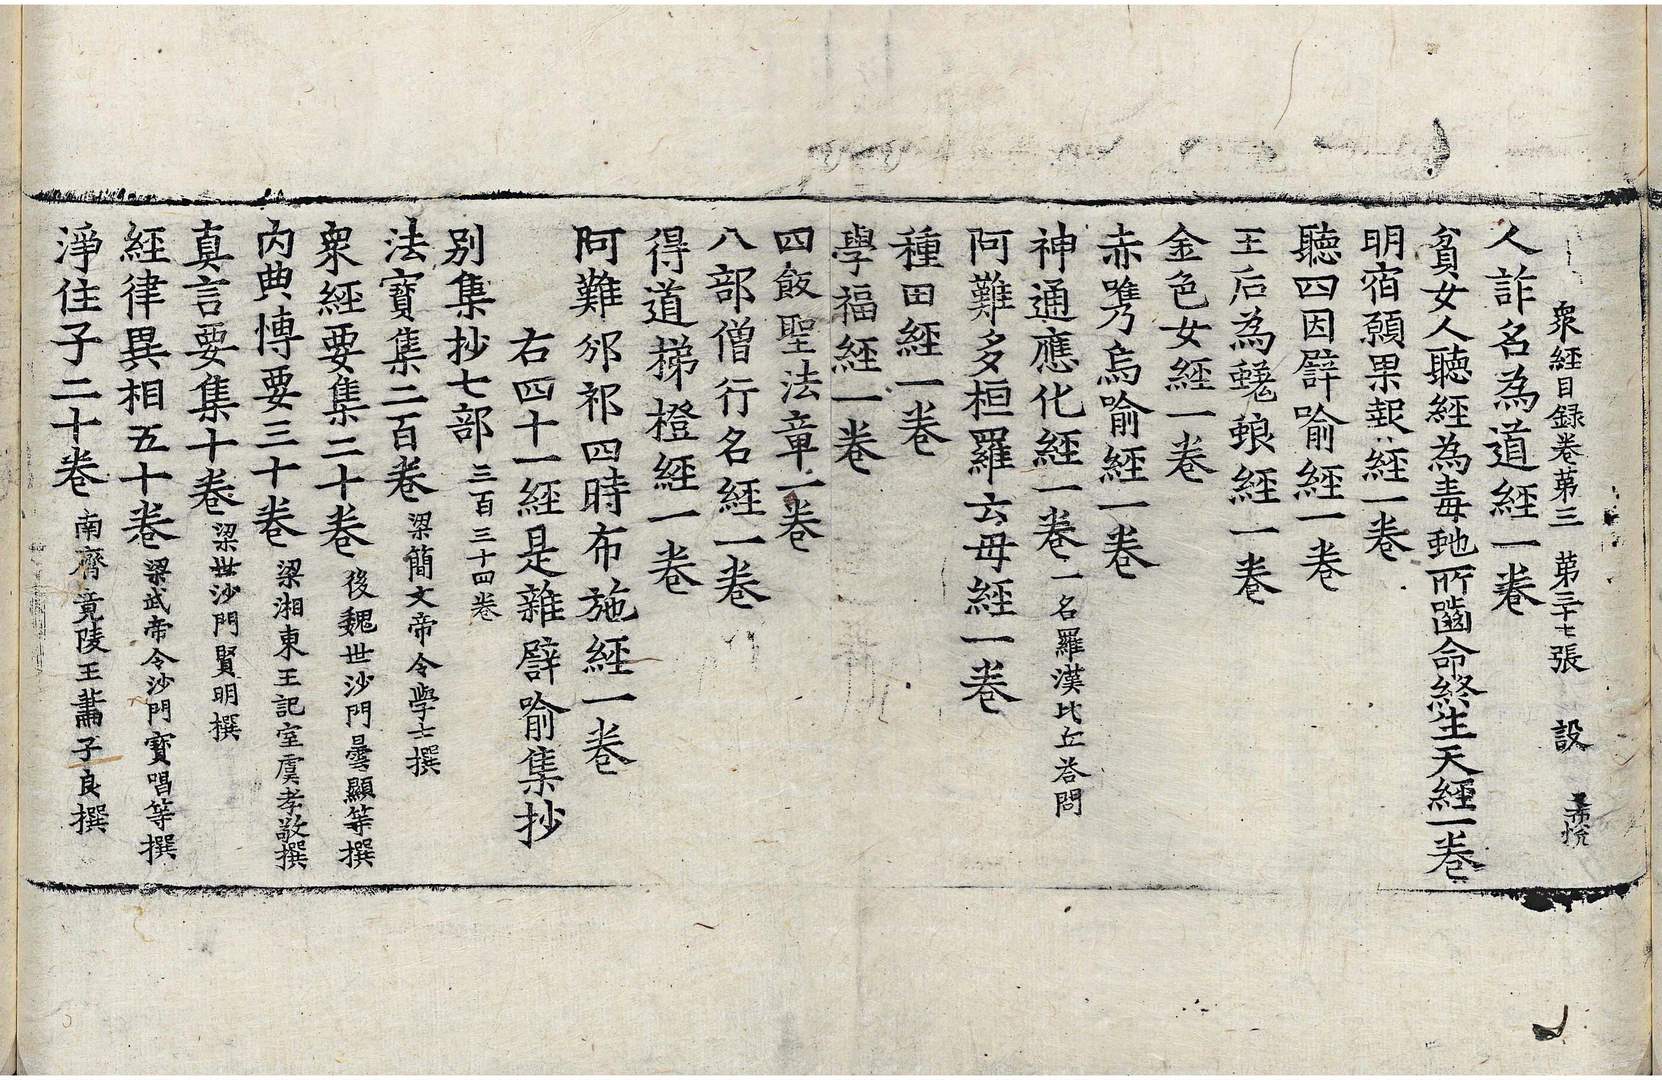 衆經目録卷第三 第三十七張 設 希悅
人詐名為道經一卷
貧女人聽經為毒虵所齧命終生天經一卷
明宿願果報經一卷
聽四因譬喻經一卷
王后為蜣蜋經一卷
金色女經一卷
赤㭰烏喻經一卷
神通應化經一卷 一名羅漢比丘荅問
阿難多桓羅云母經一卷
種田經一卷
學福經一卷
四飯聖法章一卷
八部僧行名經一卷
得道梯橙經一卷
阿難邠祁四時布施經一卷
右四十一經是雜譬喻集抄
別集抄七部 三百三十四卷
法寶集二百卷 梁簡文帝令學士撰
衆經要集二十卷 後魏世沙門曇顯等撰
內典博要三十卷 梁湘東王記室虞孝敬撰
真言要集十卷 梁世沙門賢明撰
經律異相五十卷 梁武帝令沙門寶唱等撰
淨住子二十卷 南齊竟陵王蕭子良撰